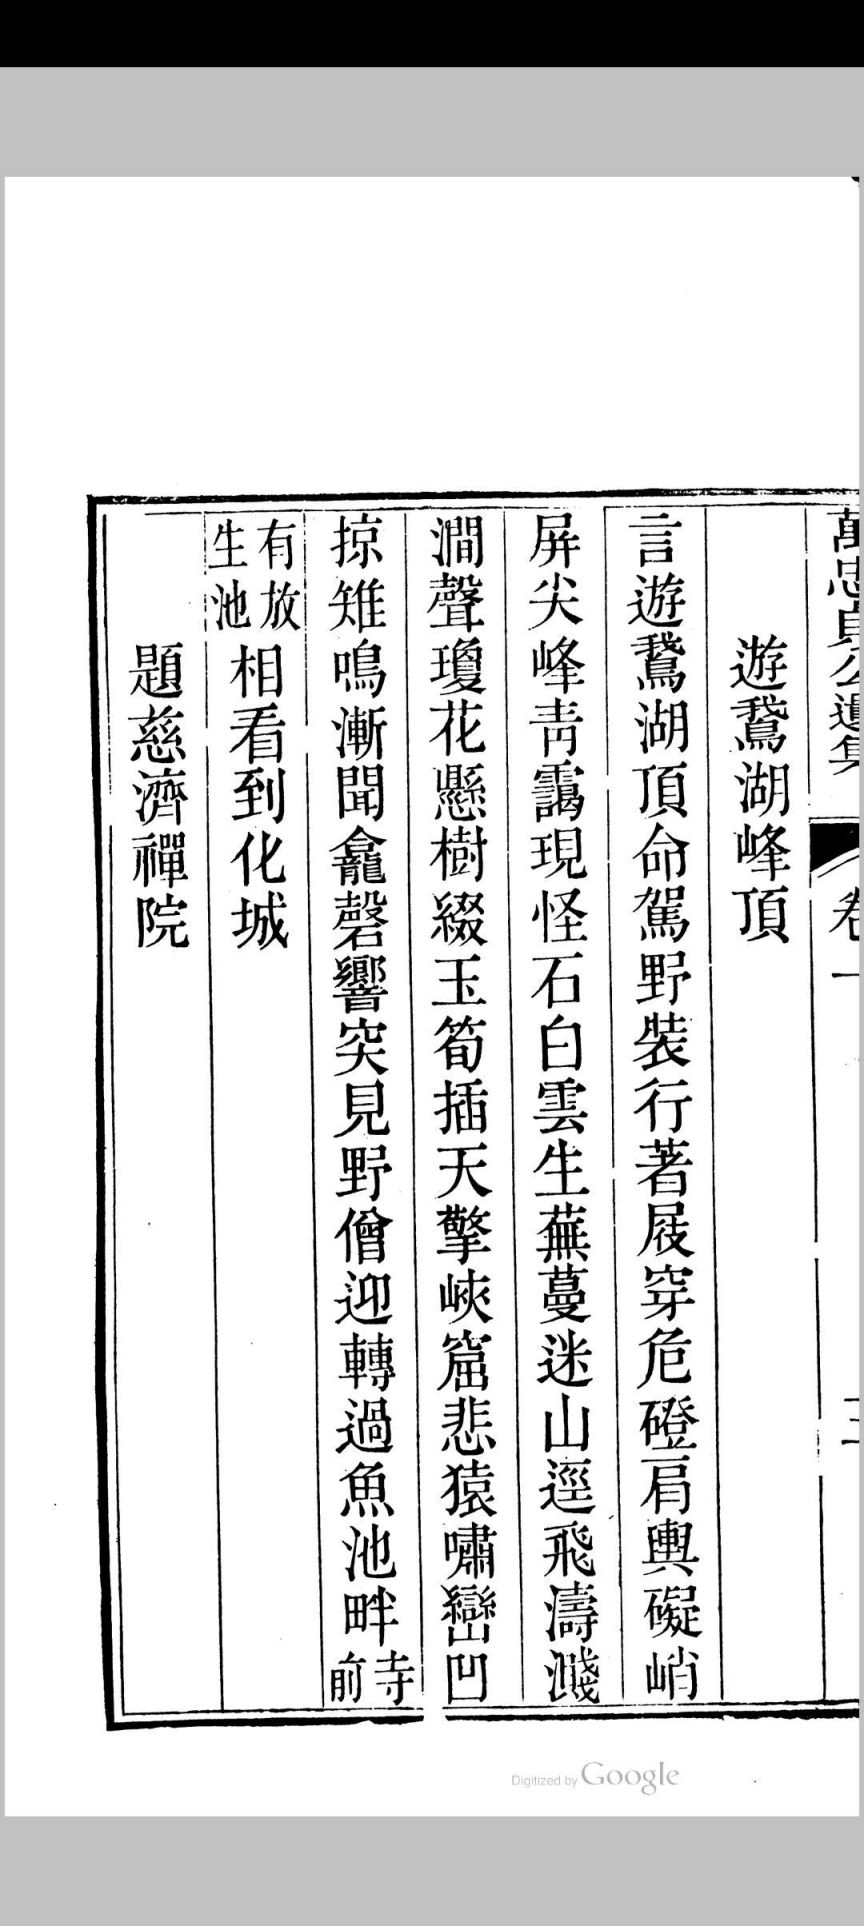 萬忠貞公遺集 卷一 三
遊鵞湖峰頂
言遊鵞湖頂命駕野裝行著屐穿危磴肩輿礙峭
屏尖峰靑靄現怪石白雲生蕪蔓迷山逕飛濤濺
澗聲瓊花懸樹綴玉筍插天擎峽窟悲猿嘯巒凹
掠雉鳴漸聞龕磬響突見野僧迎轉過魚池畔寺前
有放生池相看到化城
題慈濟禪院
Digitized by Google